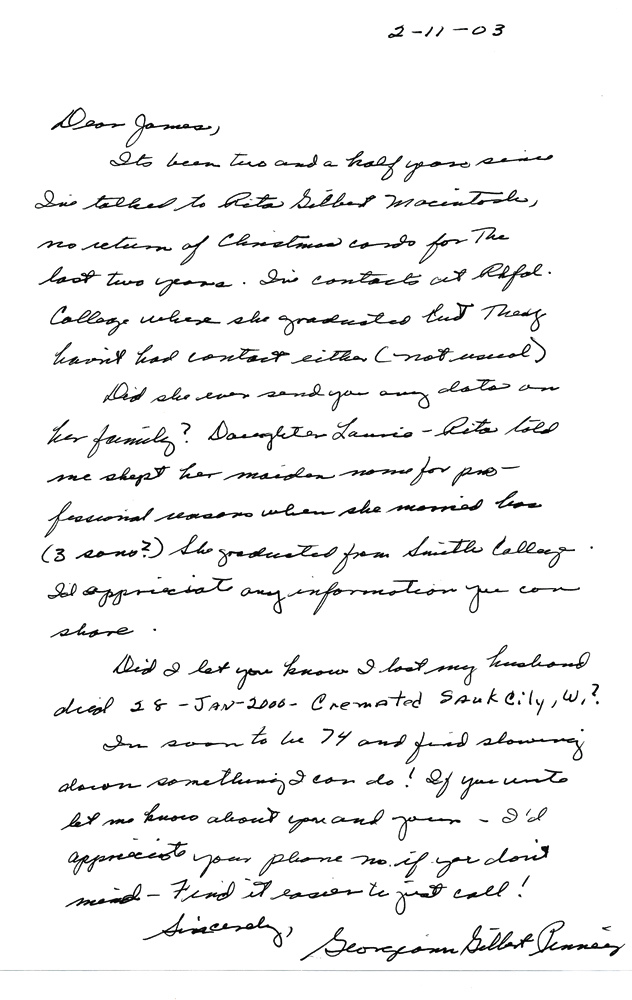 2-11-03
Dear James,
Its been two and a half years since
I've talked to Rita Gilbert Macintosh,
no return of Christmas cards for The
last two years. I've contacts at Rkfd.
College where she graduated but They
havin't had contact either (not usual)
Did she ever send you any data on
her family? Daughter Laurie - Rita told
me she kept her maiden name for pro-
fessional reasons when she married has
(3 sons?) She graduated from Smith College.
I'd appreciat any information you can
share.
Did I let you know I lost my husband
died 28-JAN-2000- Cremated Sauk City, Wi?
I'm soon to be 74 and find slowing
down something I can do! If you write
let me know about you and yours - I'd
appreciate your phone no. if you don't
mind - Find it easier to just call!
Sincerely,
Georgann Gilbert